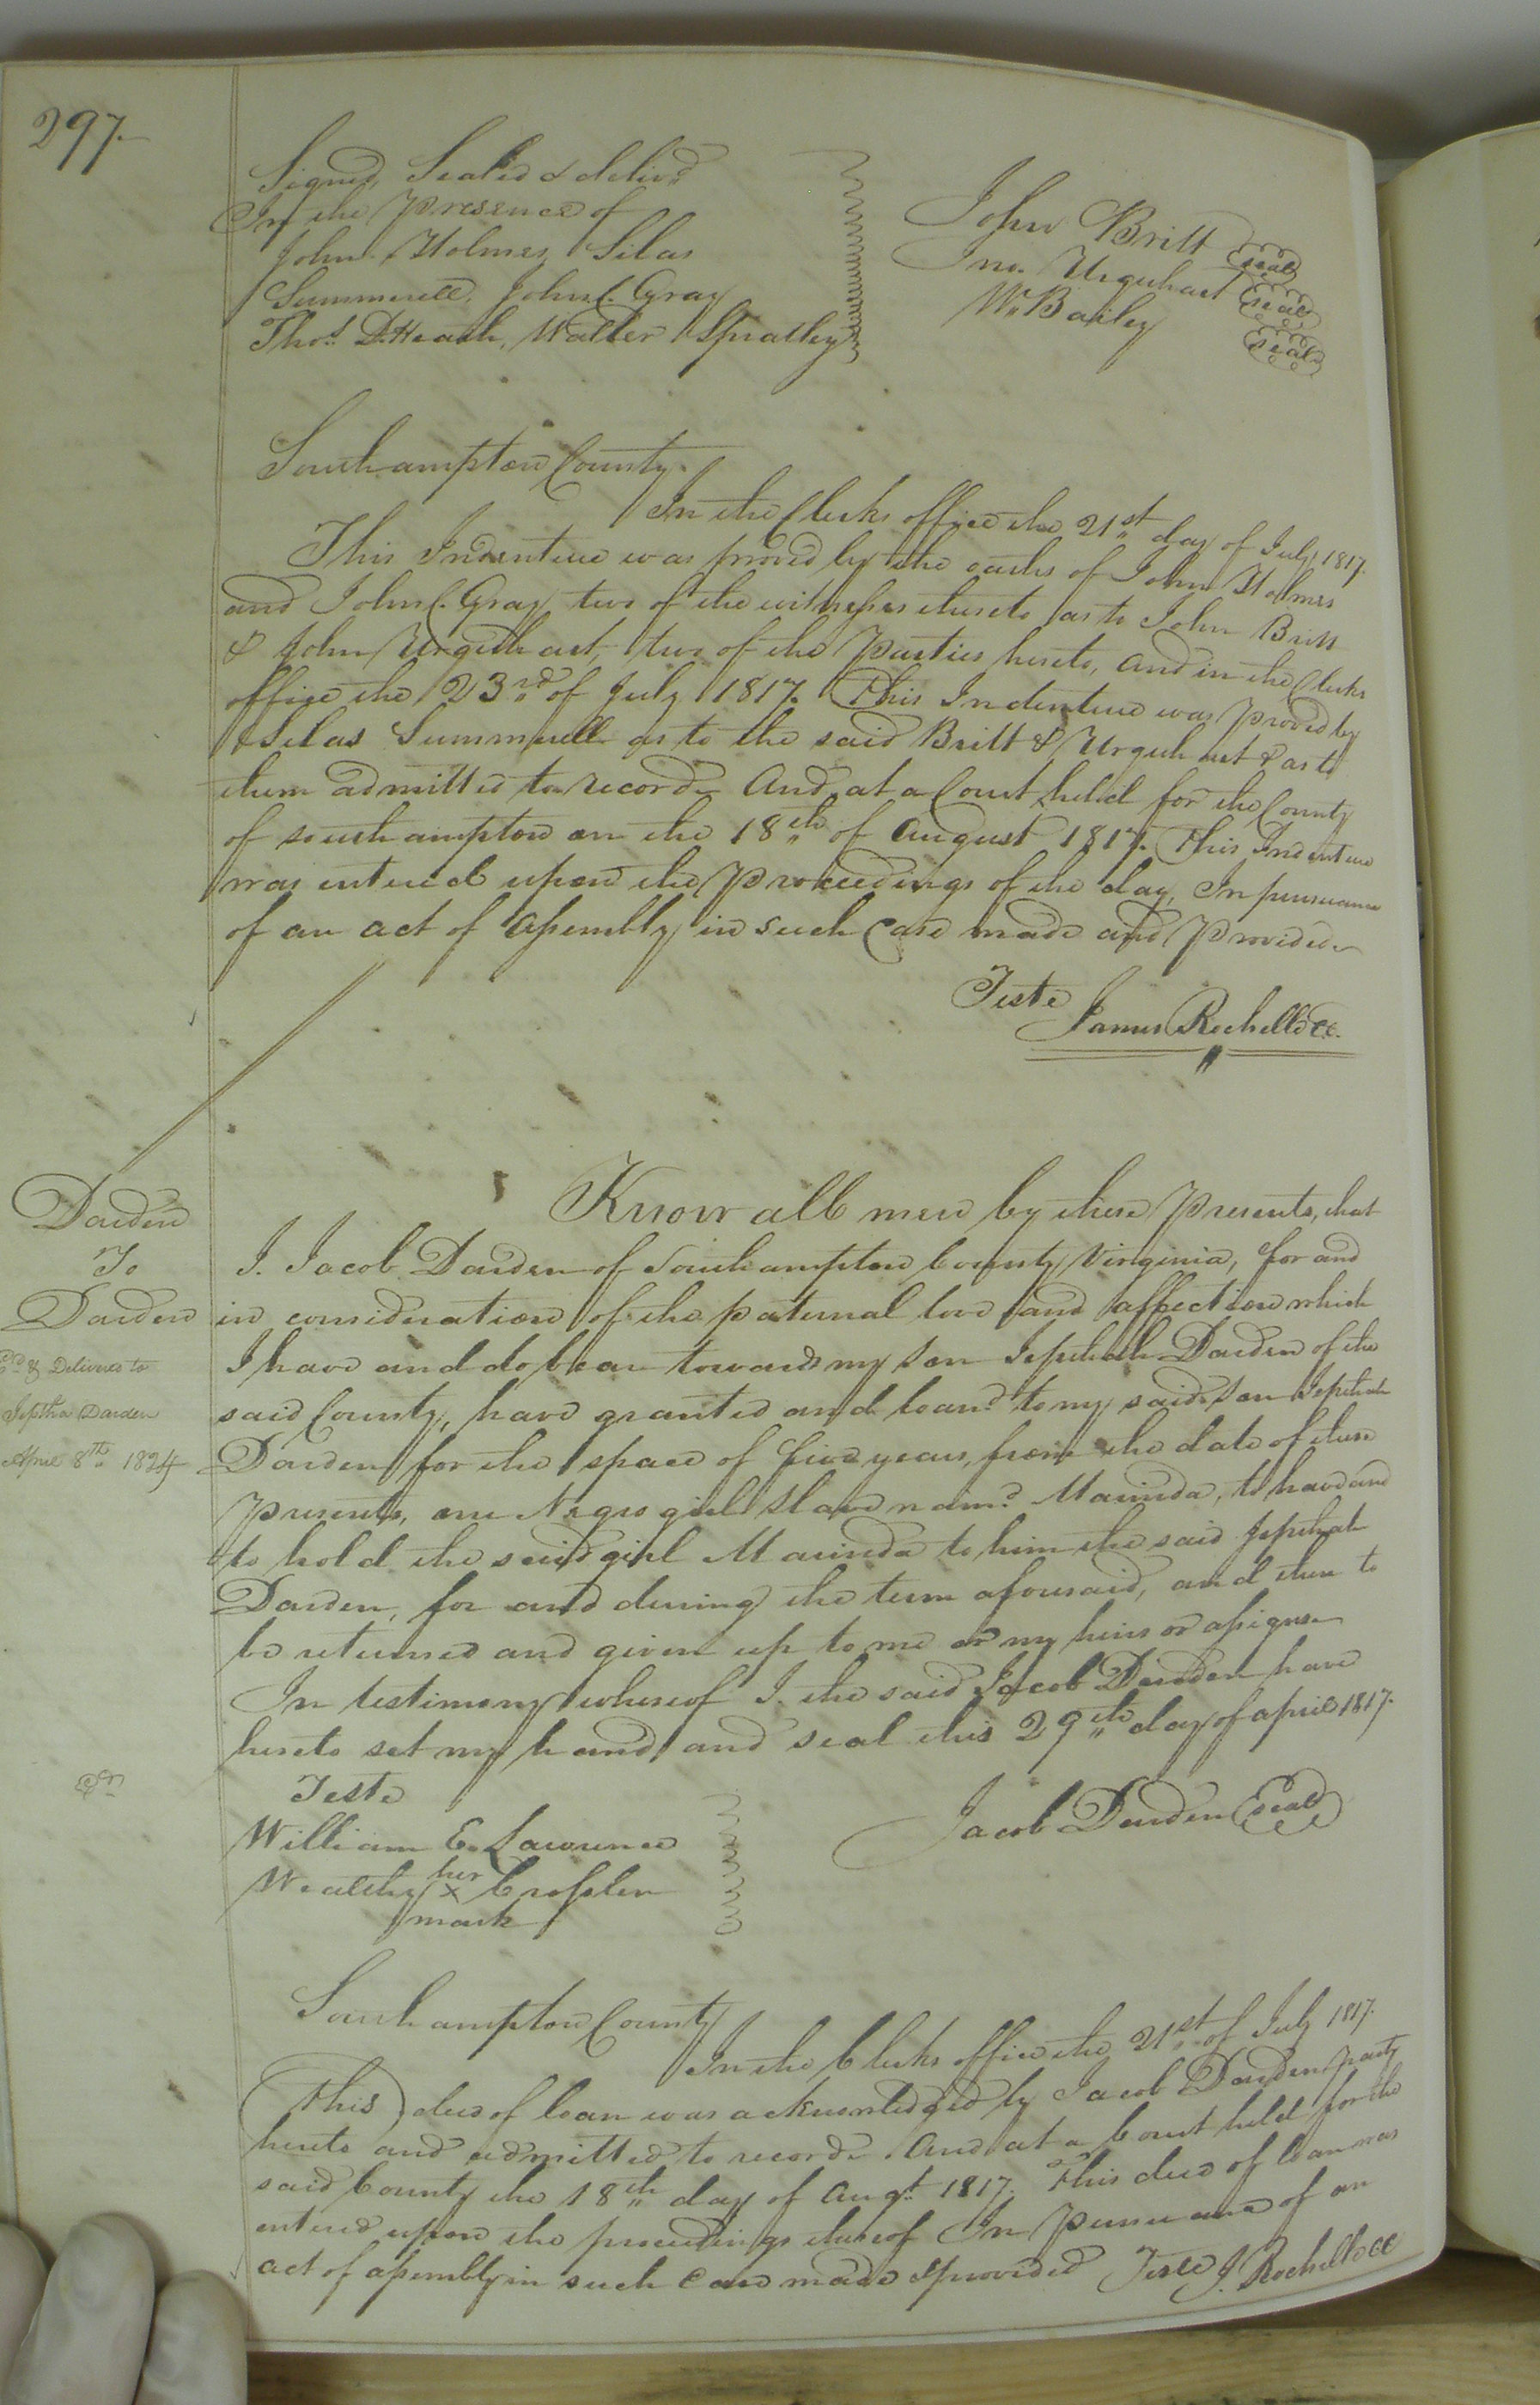 297.
Signed, Sealed & delivd
In the Presence of
John Holmes, Silas
Summerell, John C. Gray
Thos. D. Heath, Walter Spratley
John Britt seal
Jno. Urquhart seal
Wm Bailey seal
Southampton County.
In the Clerks office the 21st day of July, 1817.
This Indenture was proved by the oaths of John Holmes
and John C. Gray two of the witnesses thereto as to John Britt
& John Urquhart two of the Parties hereto, and in the Clerks
office the 23rd of July 1817. This Indenture was Proved by
Silas Summerell as to the said Britt & Urquhart & as to
them admitted to record. And at a Court held for the County
of southampton on the 18th of August 1817. This Indenture
was entered upon the Proceedings of the day, In pursuance
of an act of Assembly in such Case made and Provided
Teste
James Rochelle CC.
Darden
To
Darden
& Delivered to
Jeptha Darden
April 8th 1824
Know all men by these Presents, that
I. Jacob Darden of Southampton County Virginia, for and
in consideration of the paternal love and affection which
I have and do bear towards my son Jephthah Darden of the
said County, have granted and loand to my said son Jephthah
Darden for the space of five years, from the date of these
Presents, one Negro girl slave namd Marinda, to have and
to hold the said girl Marinda to him the said Jephthah
Darden, for and during the term aforesaid, and then to
be returned and given up to me or my heirs or assigns
In testimony whereof I. the said Jacob Darden have
hereto set my hand and seal this 29th day of april 1817.
Teste
William E. Lawrence
Wealthy her x Crossler
mark
Jacob Darden Seal
Southampton County
In the Clerks office the 21st of July 1817.
This deed of loan was acknowledged by Jacob Darden party
hereto and admitted to record. And at a Court held for the
said County the 18th day of Augt 1817. This deed of loan was
entered upon the proceedings thereof In Pursuance of an
act of assembly in such Case made & provided Teste J. Rochelle CC